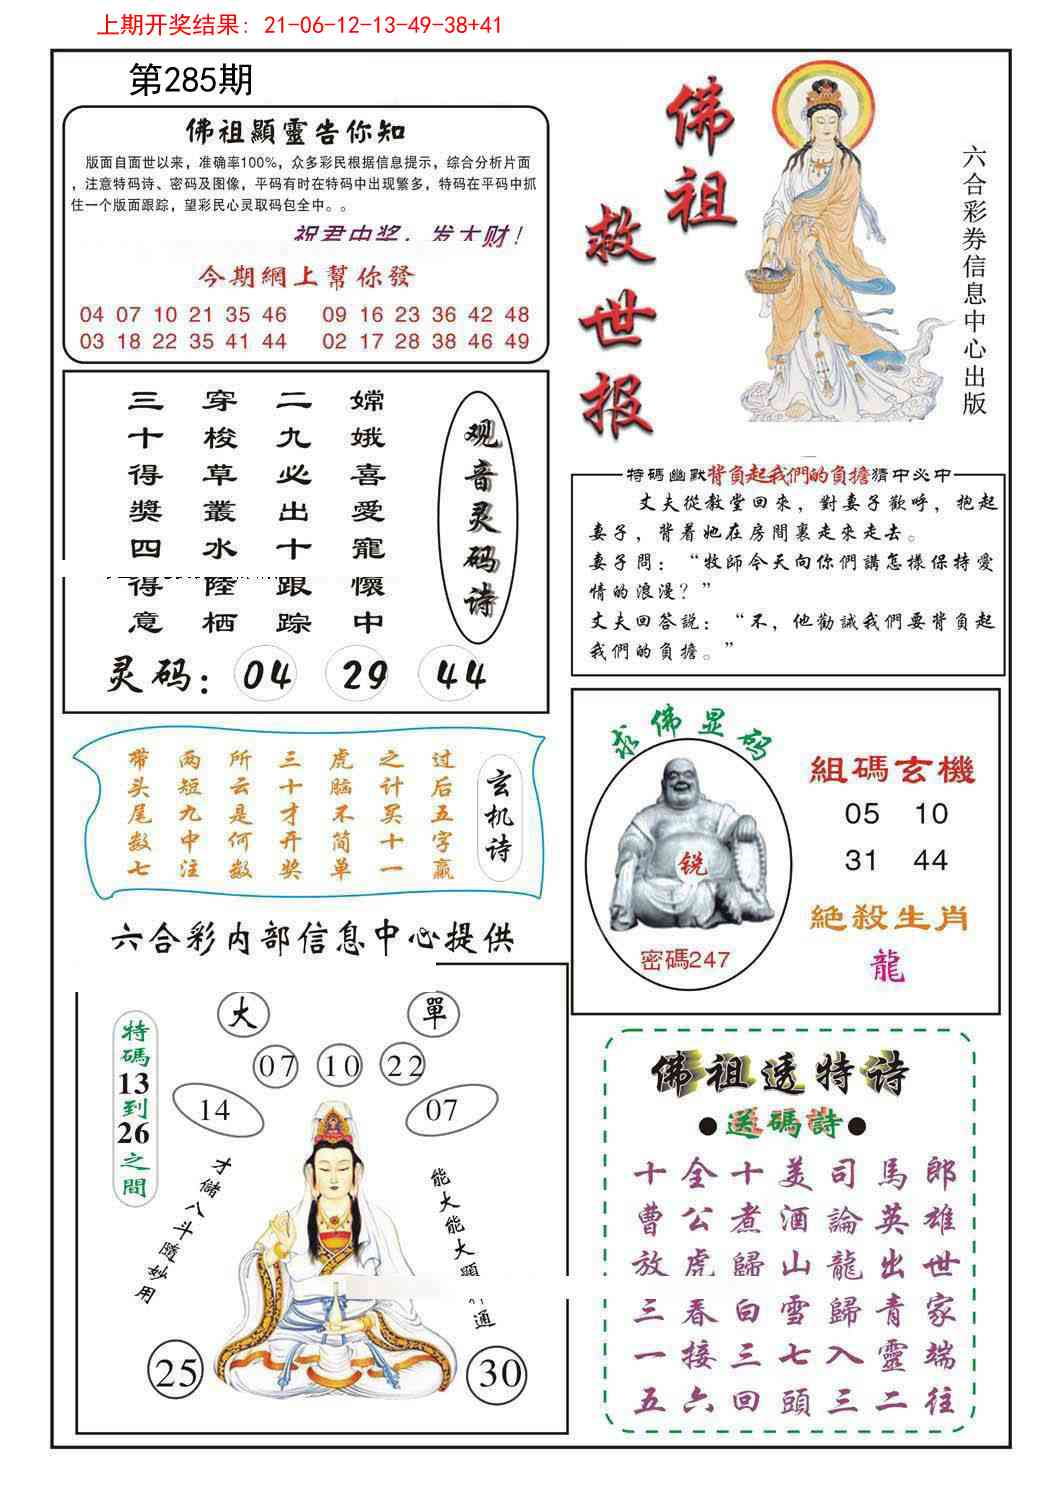 上期开奖结果: 21-06-12-13-49-38+41
第285期
佛祖顯靈告你知
版面自面世以来，准确率100%，众多彩民根据信息提示，综合分析片面
，注意特码诗、密码及图像，平码有时在特码中出现繁多，特码在平码中抓
住一个版面跟踪，望彩民心灵取码包全中。。
祝君中奖，发大财！
今期網上幫你發
04 07 10 21 35 46 09 16 23 36 42 48
03 18 22 35 41 44 02 17 28 38 46 49
佛祖
救世报
六合彩券信息中心出版
观音灵码诗
嫦娥喜愛寵懷中
二九必出十跟踪
穿梭草叢水陸栖
三十得獎四得意
灵码：04 29 44
特碼幽默背負起我們的負擔猜中必中
丈夫從教堂回來，對妻子歡呼，抱起
妻子，背着她在房間裏走來走去。
妻子問：“牧師今天向你們講怎樣保持愛
情的浪漫？”
丈夫回答説：“不，他勸誡我們要背負起
我們的負擔。”
玄机诗
过后五字赢
之计买十一
虎脑不简单
三十才开奖
所云是何数
两短九中注
带头尾数七
求佛显码
锐
密碼247
組碼玄機
05 10
31 44
絕殺生肖
龍
六合彩内部信息中心提供
特碼13到26之間
大
單
07 10 22
14
07
才儲八斗隨妙用
能大能大顯神通
25
30
佛祖透特诗
●送碼詩●
郎雄世家端往
馬英出青靈二
司論龍歸入三
美酒山雪七頭
十煮歸白三回
全公虎春接六
十曹放三一五